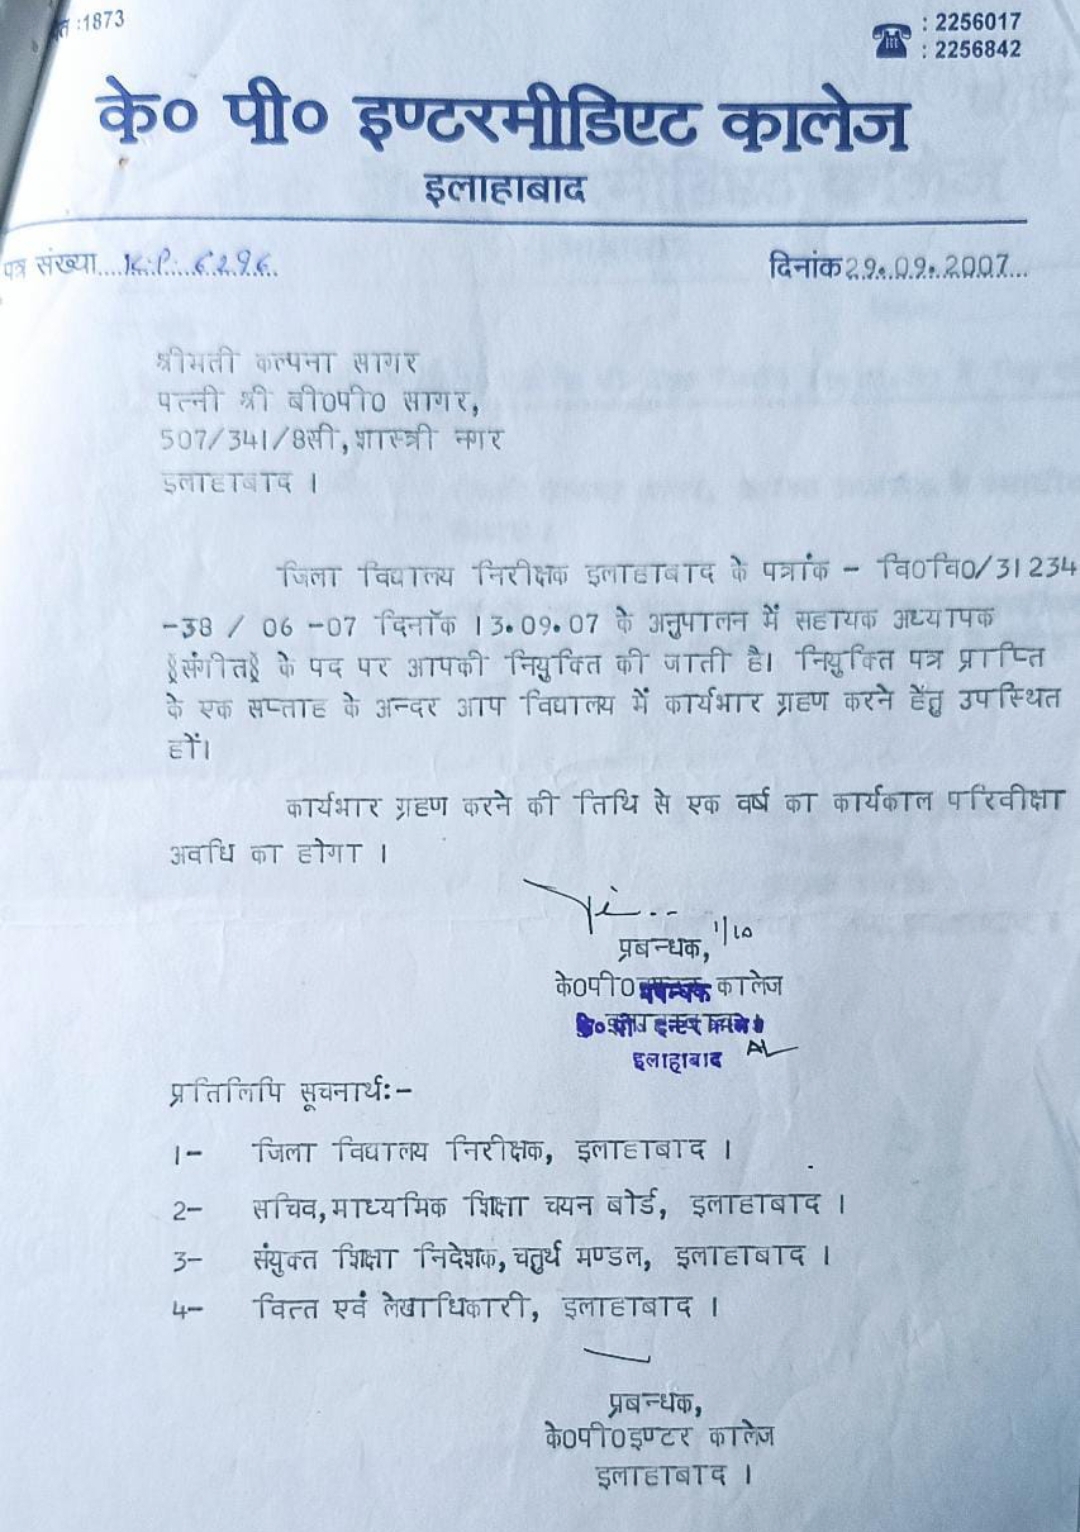 :1873
: 2256017
: 2256842
के० पी० इण्टरमीडिएट कालेज
इलाहाबाद
पत्र संख्या....K.P. 6296.
दिनांक 29.09.2007...
श्रीमती कल्पना सागर
पत्नी श्री बी0पी0 सागर,
507/341/8सी,शास्त्री नगर
इलाहाबाद ।
जिला विद्यालय निरीक्षक इलाहाबाद के पत्रांक - वि0वि0/31234
-38 / 06 -07 दिनॉक 13.09.07 के अनुपालन में सहायक अध्यापक
(संगीत) के पद पर आपकी नियुक्ति की जाती है। नियुक्ति पत्र प्राप्ति
के एक सप्ताह के अन्दर आप विद्यालय में कार्यभार ग्रहण करने हेतु उपस्थित
हों।
कार्यभार ग्रहण करने की तिथि से एक वर्ष का कार्यकाल परिवीक्षा
अवधि का होगा ।
1/10
प्रबन्धक,
के0पी0 कालेज
प्रबन्धक
के० पी० इन्टर कालेज
इलाहाबाद
प्रतिलिपि सूचनार्थः-
1- जिला विद्यालय निरीक्षक, इलाहाबाद ।
2- सचिव,माध्यमिक शिक्षा चयन बोर्ड, इलाहाबाद ।
3- संयुक्त शिक्षा निदेशक,चतुर्थ मण्डल, इलाहाबाद ।
4- वित्त एवं लेखाधिकारी, इलाहाबाद ।
प्रबन्धक,
के0पी0इण्टर कालेज
इलाहाबाद ।